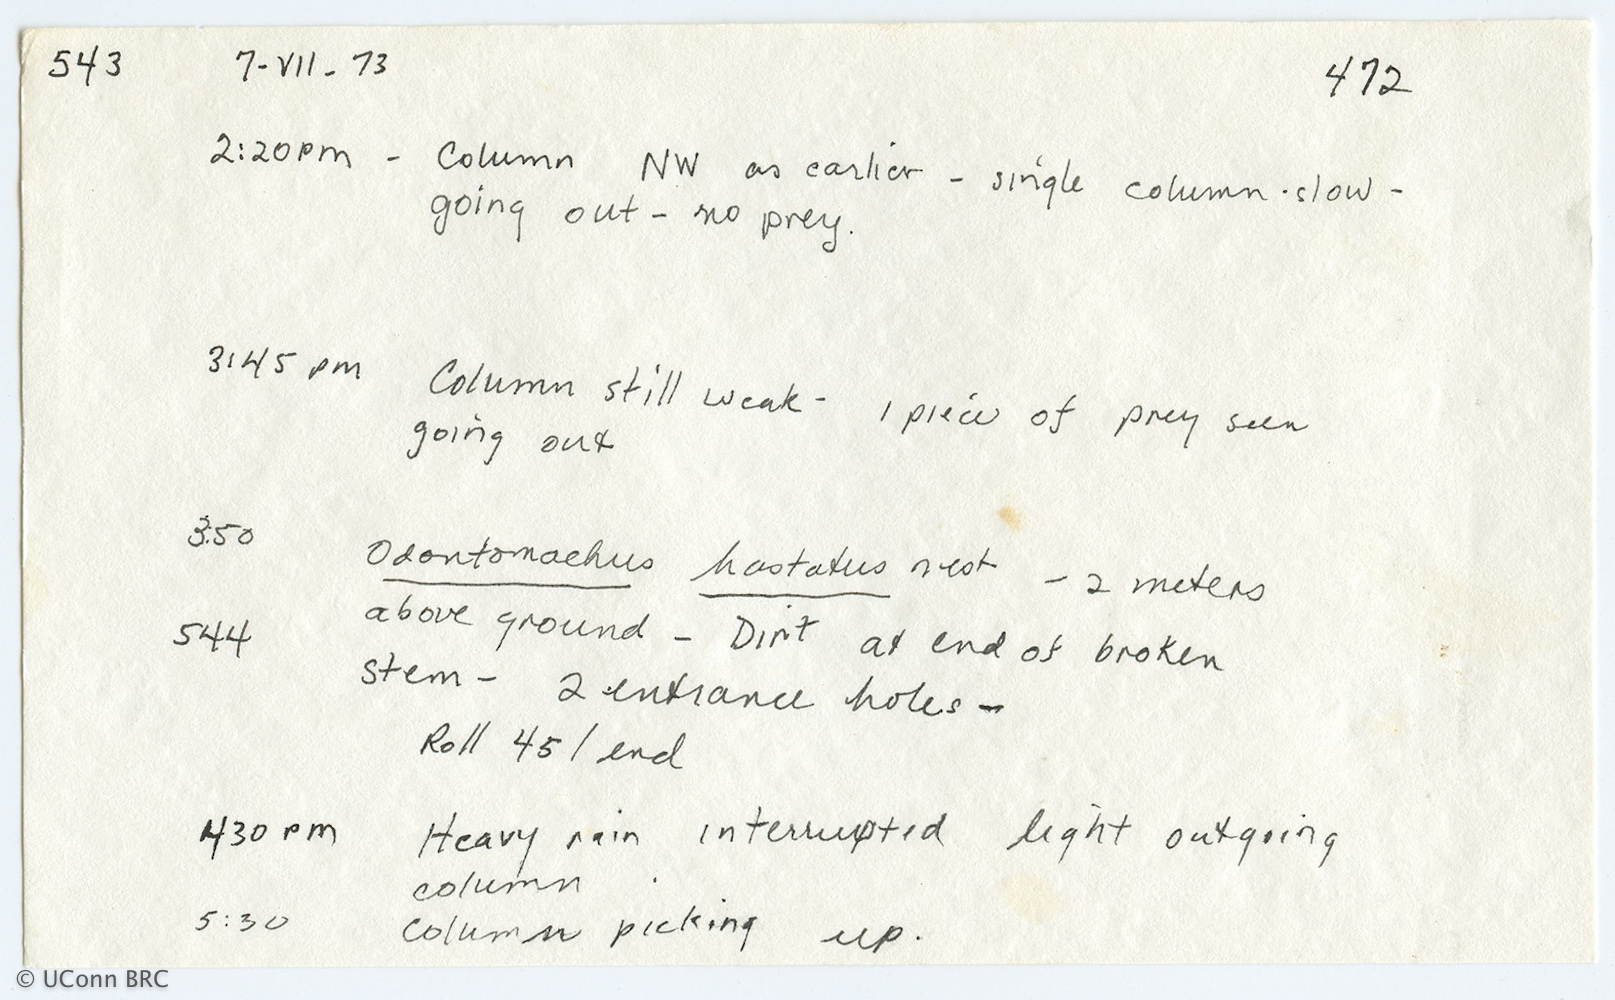 543 7-VII-73 472
2:20pm - Column NW as earlier - single column - slow -
going out - no prey.
3:45 pm Column still weak - 1 piece of prey seen
going out
3:50 Odontomachus hastatus nest - 2 meters
above ground - Dirt at end of broken
544
stem - 2 entrance holes -
Roll 45 / end
430 pm Heavy rain interrupted light outgoing
column.
5:30 Column picking up.
© UConn BRC